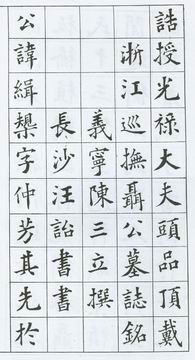 誥授光祿大夫頭品頂戴
浙江巡撫聶公墓誌銘
義寧陳三立撰
長沙汪詒書書
公諱緝槼字仲芳其先於